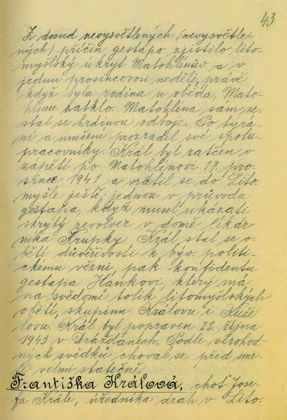 43
Z dosud nevysvětlených (nevysvětlel
ných) příčin gestapo zjistilo lito
myšlský úkryt Matohlinův a v
jednu prosincovou neděli, právě
když byla rodina u oběda, Mato-
hlinu zatklo. Matohlina sám ne-
stal se hrdinou odboje. Po týrá-
ní a mučení prozradil své spolu
pracovníky. Král byl zatčen v
zápětí po Matohlinovi 17. pro-
since 1941 a vrátil se do Lito
myšle ještě jednou v průvodu
gestapa, když musel ukázati
skrytý revolver v domě lékár
níka Krupky. Král stal se o-
bětí důvěřivosti k býv. politi
ckému vězni, pak konfidentu
gestapa Hankovi, který má
na svědomí tolik litomyšlských
obětí, skupinu Královu i
lovu. Král byl popraven 22. října
1943 v Drážďanech. Podle věrohod-
ných svědků choval se před smr
telmi statečně.
Františka Králová, choť Jose-
fa Krále, úředníka drah v Lito